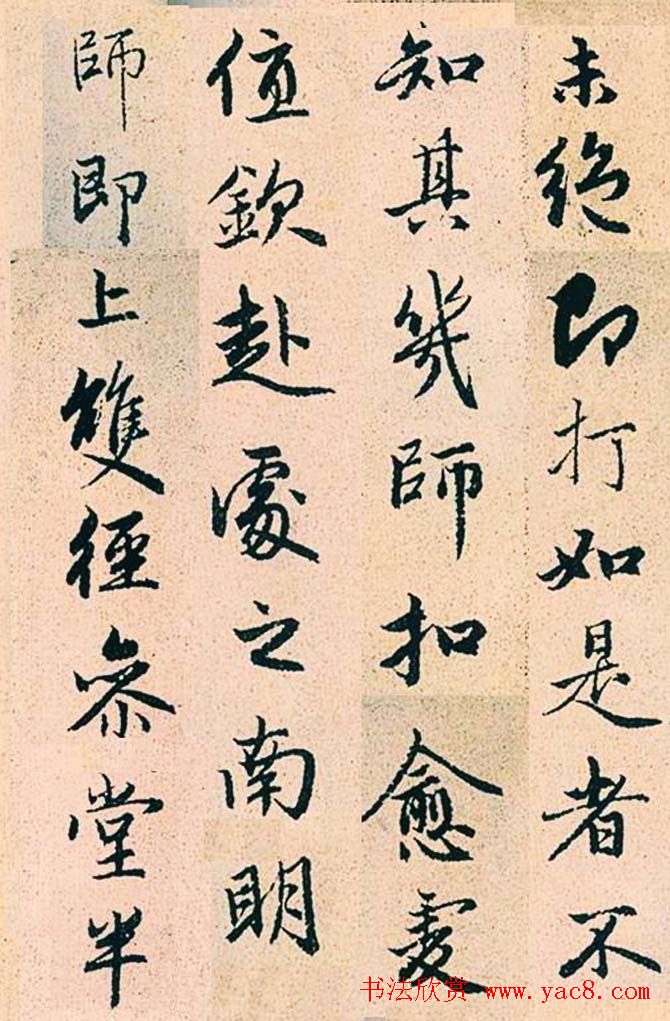 未絕即打如是者不
知其幾師扣愈虔
值欽赴處之南明
師即上雙徑參堂半
书法欣赏 www.yac8.com